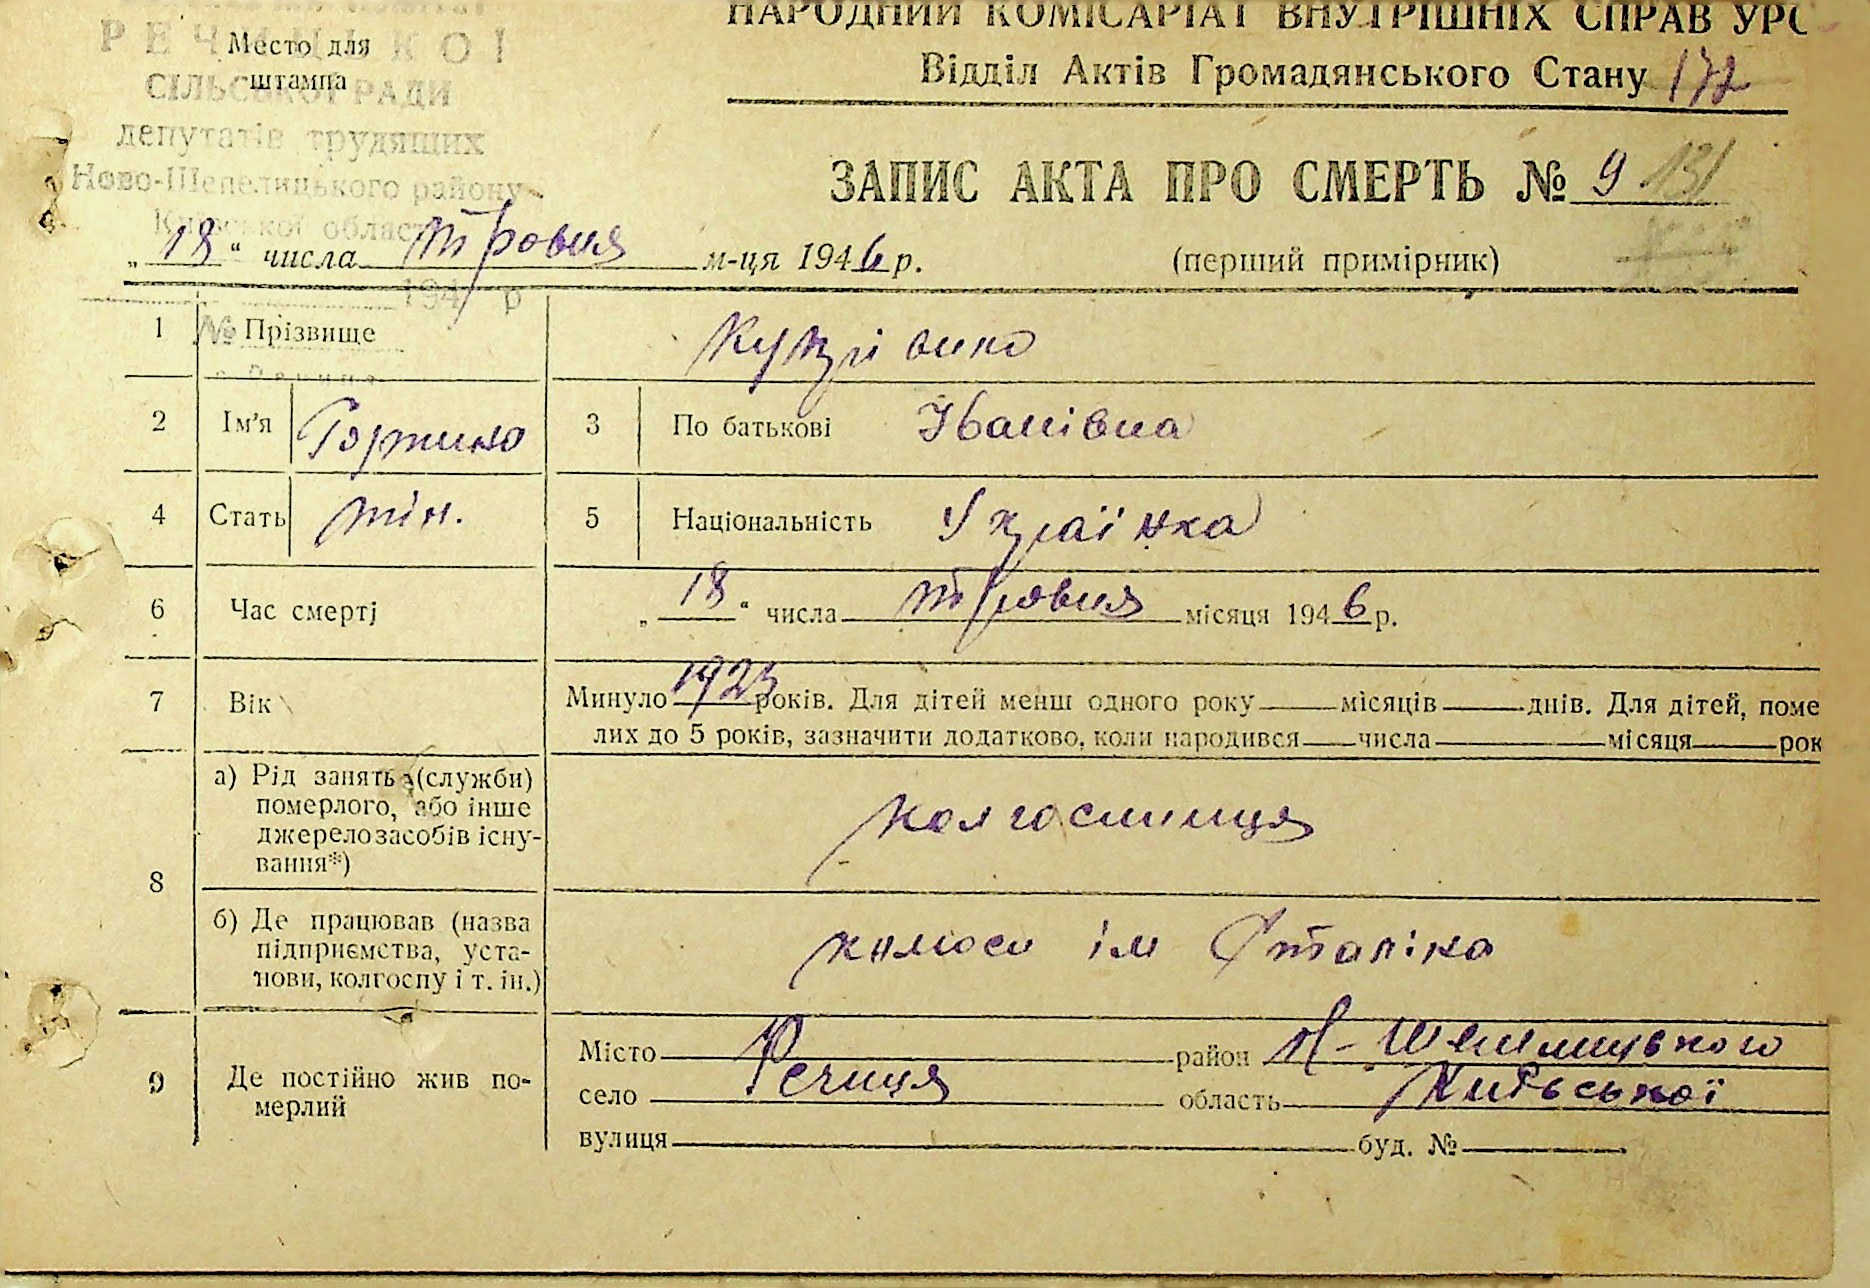 РЕЧИЦЬКОЇ
Место для
штампа
СІЛЬСЬКОЇ РАДИ
депутатів трудящих
Ново-Шепелицького району
Київської області
НАРОДНИЙ КОМІСАРІАТ ВНУТРІШНІХ СПРАВ УРС
Відділ Актів Громадянського Стану 172
ЗАПИС АКТА ПРО СМЕРТЬ № 9 131
„18“ числа травня м-ця 1946 р.
(перший примірник)
194 р
1 № Прізвище
2 Ім'я
3 По батькові Іванівна
4 Стать жін.
5 Національність Українка
6 Час смерті „18“ числа травня місяця 1946 р.
7 Вік Минуло 1923 років. Для дітей менш одного року місяців днів. Для дітей, поме
лих до 5 років, зазначити додатково, коли народився числа місяця рок
8 а) Рід занять (служби)
померлого, або інше
джерело засобів існу-
вання*)
колгоспниця
б) Де працював (назва
підприємства, уста-
нови, колгоспу і т. ін.)
ім Сталіна
9 Де постійно жив по-
мерлий
Місто район Н-Шепелицького
село Речиця область Київської
вулиця буд. №